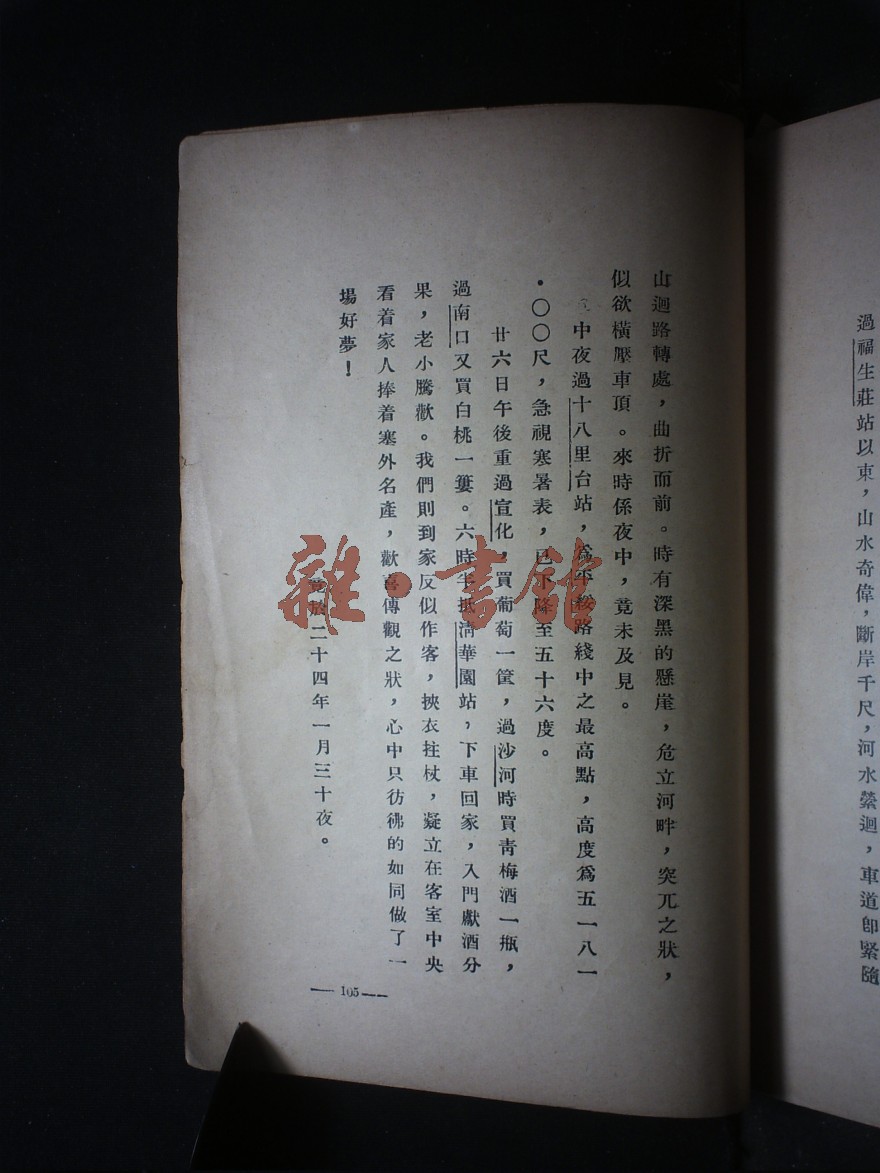 過福生莊站以東，山水奇偉，斷岸千尺，河水縈迴，車道即緊隨
山迴路轉處，曲折而前。時有深黑的懸崖，危立河畔，突兀之狀，
似欲橫壓車頂。來時係夜中，竟未及見。
中夜過十八里台站，爲平綏路綫中之最高點，高度爲五一八一
•〇〇尺，急視寒暑表，已下降至五十六度。
廿六日午後重過宣化，買葡萄一筐，過沙河時買靑梅酒一瓶，
過南口又買白桃一簍。六時半抵淸華園站，下車回家，入門獻酒分
果，老小騰歡。我們則到家反似作客，挾衣拄杖，凝立在客室中央
看着家人捧着塞外名產，歡喜傳觀之狀，心中只彷彿的如同做了一
場好夢！
於二十四年一月三十夜。
— 105 —
雜•書館